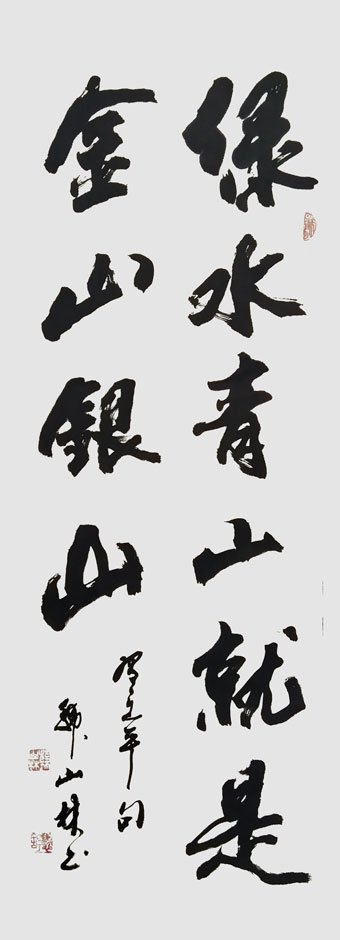 綠水青山就是
金山銀山
習近平句
山林书